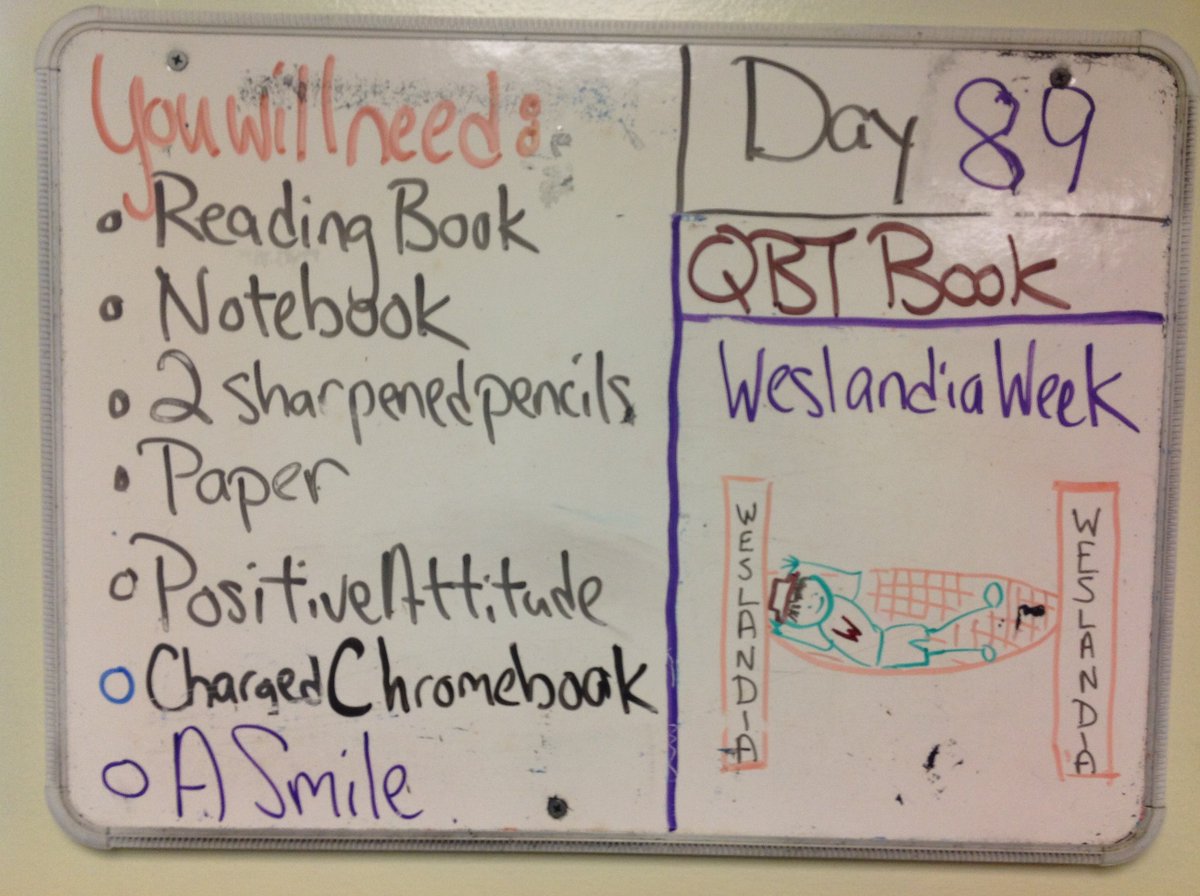 You will need:
Reading Book
Notebook
2 sharpened pencils
Paper
Positive Attitude
Charged Chromebook
A Smile
Day 89
QBT Book
Weslandia Week
WESLANDIA
W
WESLANDIA